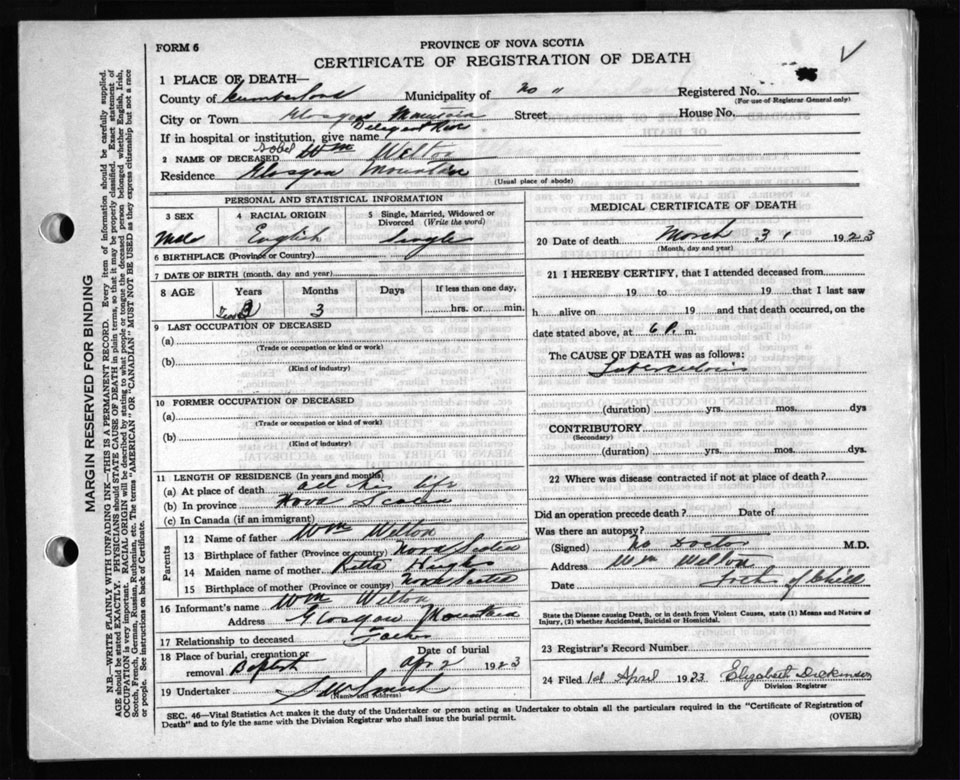 FORM 6
PROVINCE OF NOVA SCOTIA
CERTIFICATE OF REGISTRATION OF DEATH
1 PLACE OF DEATH—
County of Cumberland Municipality of No " Registered No.
(For use of Registrar General only)
City or Town Glasgow Mountain Street House No.
If in hospital or institution, give name
2 NAME OF DECEASED Isobel Wm Welton
Residence Glasgow Mountain
(Usual place of abode)
PERSONAL AND STATISTICAL INFORMATION
3 SEX 4 RACIAL ORIGIN 5 Single, Married, Widowed or Divorced (Write the word)
Male English Single
6 BIRTHPLACE (Province or Country)
7 DATE OF BIRTH (month, day and year)
8 AGE Years Months Days If less than one day,
3 hrs. or min.
9 LAST OCCUPATION OF DECEASED
(a)
(Trade or occupation or kind or work)
(b)
(Kind of industry)
10 FORMER OCCUPATION OF DECEASED
(a)
(Trade or occupation or kind of work)
(b)
(Kind of industry)
11 LENGTH OF RESIDENCE (In years and months)
(a) At place of death all his life
(b) In province Nova Scotia
(c) In Canada (if an immigrant)
Parents
12 Name of father Wm Welton
13 Birthplace of father (Province or country) Nova Scotia
14 Maiden name of mother Retta Hughs
15 Birthplace of mother (Province or country) Nova Scotia
16 Informant's name Wm Welton
Address Glasgow Mountain
17 Relationship to deceased Father
18 Place of burial, cremation or removal Baptist Date of burial Apr 2 1923
19 Undertaker
(Name and Address)
MEDICAL CERTIFICATE OF DEATH
20 Date of death March 31 1923
(Month, day and year)
21 I HEREBY CERTIFY, that I attended deceased from
19 to 19 that I last saw
h alive on 19 and that death occurred, on
date stated above, at 6 P. m.
The CAUSE OF DEATH was as follows:
Tuberculosis
(duration) yrs. mos. dys
CONTRIBUTORY
(Secondary)
(duration) yrs. mos. dys.
22 Where was disease contracted if not at place of death?
Did an operation precede death? Date of
Was there an autopsy?
(Signed) No Doctor M.D.
Address Wm Welton
Date Father of Child
State the Disease causing Death, or in death from Violent Causes, state (1) Means and Nature of
Injury, (2) whether Accidental, Suicidal or Homicidal.
23 Registrar's Record Number
24 Filed 1st April 1923 Elizabeth Dickinson
Division Registrar
SEC. 46—Vital Statistics Act makes it the duty of the Undertaker or person acting as Undertaker to obtain all the particulars required in the "Certificate of Registration of
Death" and to fyle the same with the Division Registrar who shall issue the burial permit.
(OVER)
MARGIN RESERVED FOR BINDING
N.B.—WRITE PLAINLY WITH UNFADING INK—THIS IS A PERMANENT RECORD. Every item of information should be carefully supplied.
AGE should be stated EXACTLY. PHYSICIANS should STATE CAUSE OF DEATH in plain terms, so that it may be properly classified. Exact statement of
OCCUPATION is very important. RACIAL ORIGIN will be described by stating to what people or tongue the deceased person belonged whether English, Irish,
Scotch, French, German, Russian, Ruthenian, etc. The terms "AMERICAN" OR "CANADIAN" MUST NOT BE USED as they express citizenship but not a race
or people. See instructions on back of Certificate.